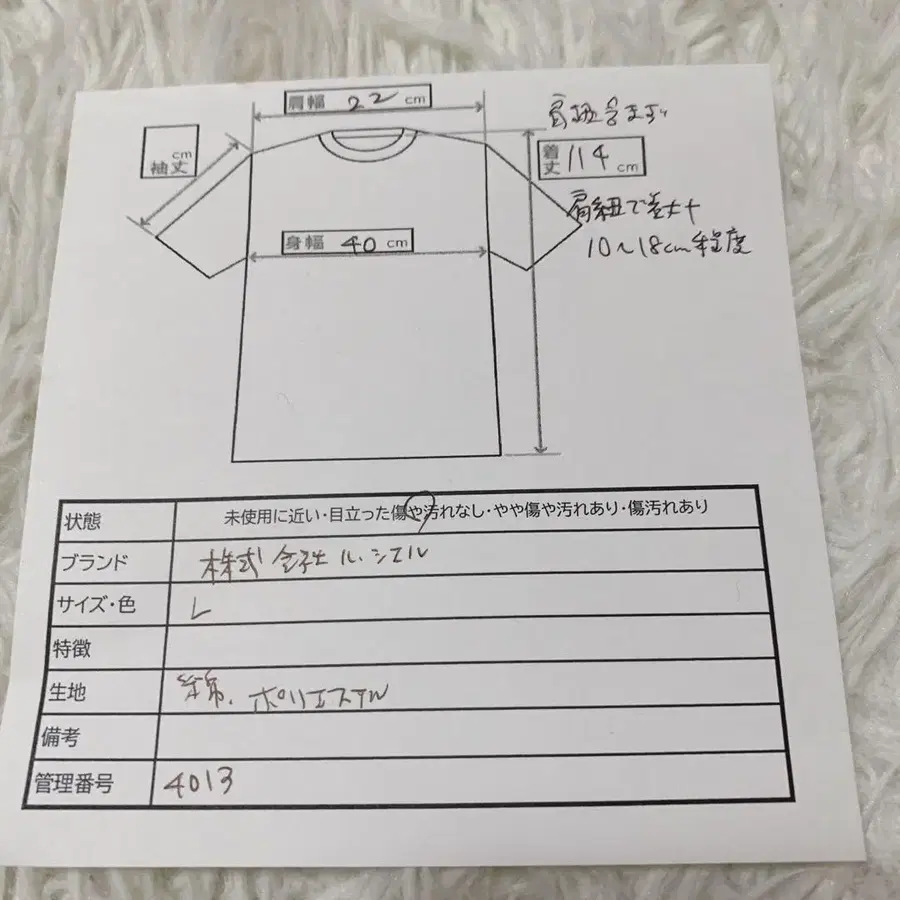 肩幅 22 cm
肩紐含まず
cm
袖丈
着丈 114 cm
肩紐で
10~18cm程度
身幅 40 cm
状態 未使用に近い・目立った傷や汚れなし・やや傷や汚れあり・傷汚れあり
ブランド 株式会社ル.シエル
サイズ・色 L
特徴
生地 綿.ポリエステル
備考
管理番号 4013